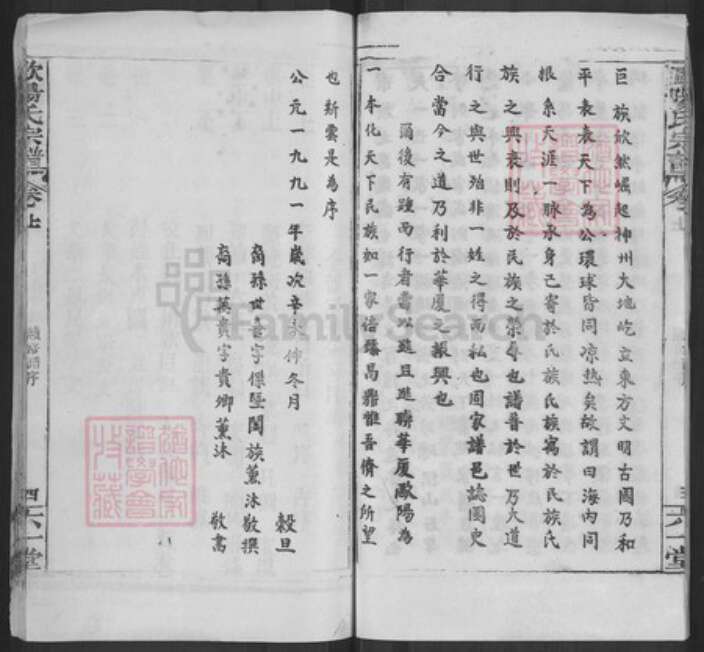 巨族欣然崛起神州大地屹立東方文明古國乃和
平表表天下為公環球皆同凉熱矣故謂曰海內同
根系天涯一脉承身已寄於氏族氏族寓於民族氏
族之興衰則及於民族之榮辱也譜晉於世乃大道
行之與世殆非一姓之得而私也固家譜邑誌國史
合當今之道乃利於華廈之振興也
爾後有踵而行者當以進且進聯華厦歐陽為
一本化天下民族如一家倍臻昌鼎惟吾儕之所望
也新雲是為序
公元一九九一年歲次辛未仲冬月
穀旦
裔孫世 字傑 闔族薰沐敬撰
裔孫英貴字貴卿薰沐
敬書
歐陽氏宗譜
卷上
四
六一堂
三
六一堂
FamilySearch